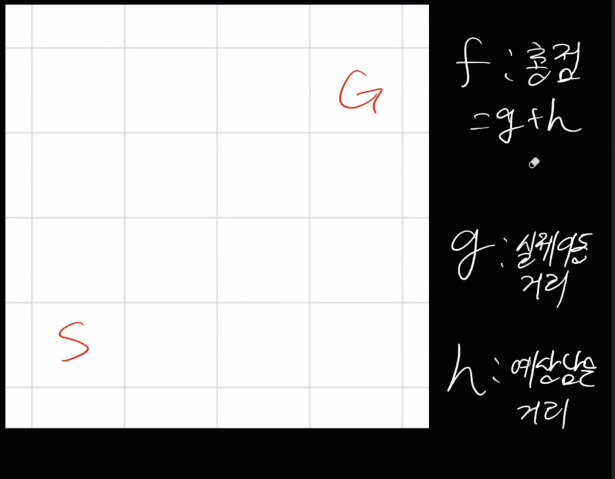 G
S
f : 총점
= g + h
g : 실제이동
거리
h : 예상남은
거리